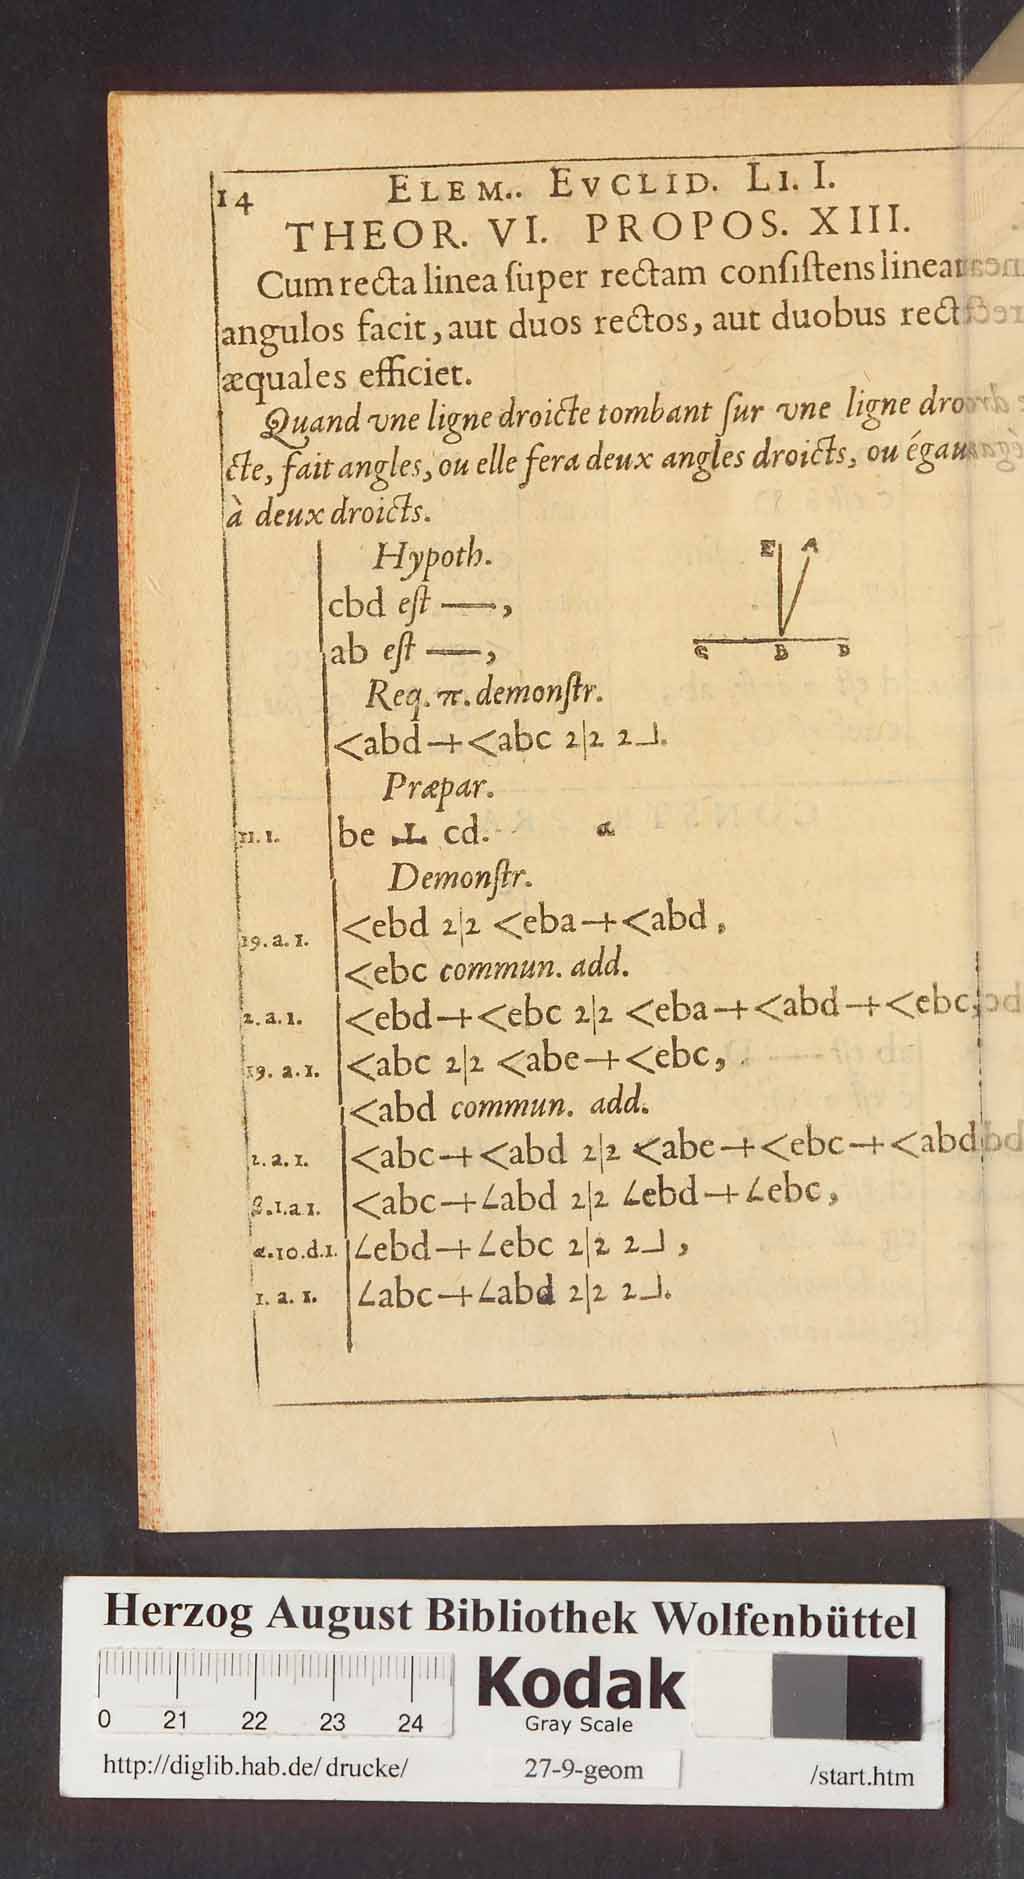 14 ELEM.. EVCLID. LI. I.
THEOR. VI. PROPOS. XIII.
Cum recta linea ſuper rectam conſiſtens linea
angulos facit, aut duos rectos, aut duobus rect
æquales efficiet.
Quand vne ligne droicte tombant ſur vne ligne droi
cte, fait angles, ou elle fera deux angles droicts, ou égaux
à deux droicts.
Hypoth.
cbd eſt —,
ab eſt —,
E A
C B D
Req. π. demonſtr.
<abd + <abc 2|2 2⅃.
Præpar.
11. 1. be ⊥ cd. α
Demonſtr.
19. a. 1. <ebd 2|2 <eba + <abd,
<ebc commun. add.
2. a. 1. <ebd + <ebc 2|2 <eba + <abd + <ebc,
19. a. 1. <abc 2|2 <abe + <ebc,
<abd commun. add.
2. a. 1. <abc + <abd 2|2 <abe + <ebc + <abd
β. 1. a 1. <abc + ∠abd 2|2 ∠ebd + ∠ebc,
α. 10. d. 1. ∠ebd + ∠ebc 2|2 2⅃,
1. a. 1. ∠abc + ∠abd 2|2 2⅃.
Herzog August Bibliothek Wolfenbüttel
0 21 22 23 24
Kodak
Gray Scale
http://diglib.hab.de/drucke/ 27-9-geom /start.htm